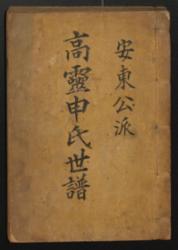 安東公派
高靈申氏世譜